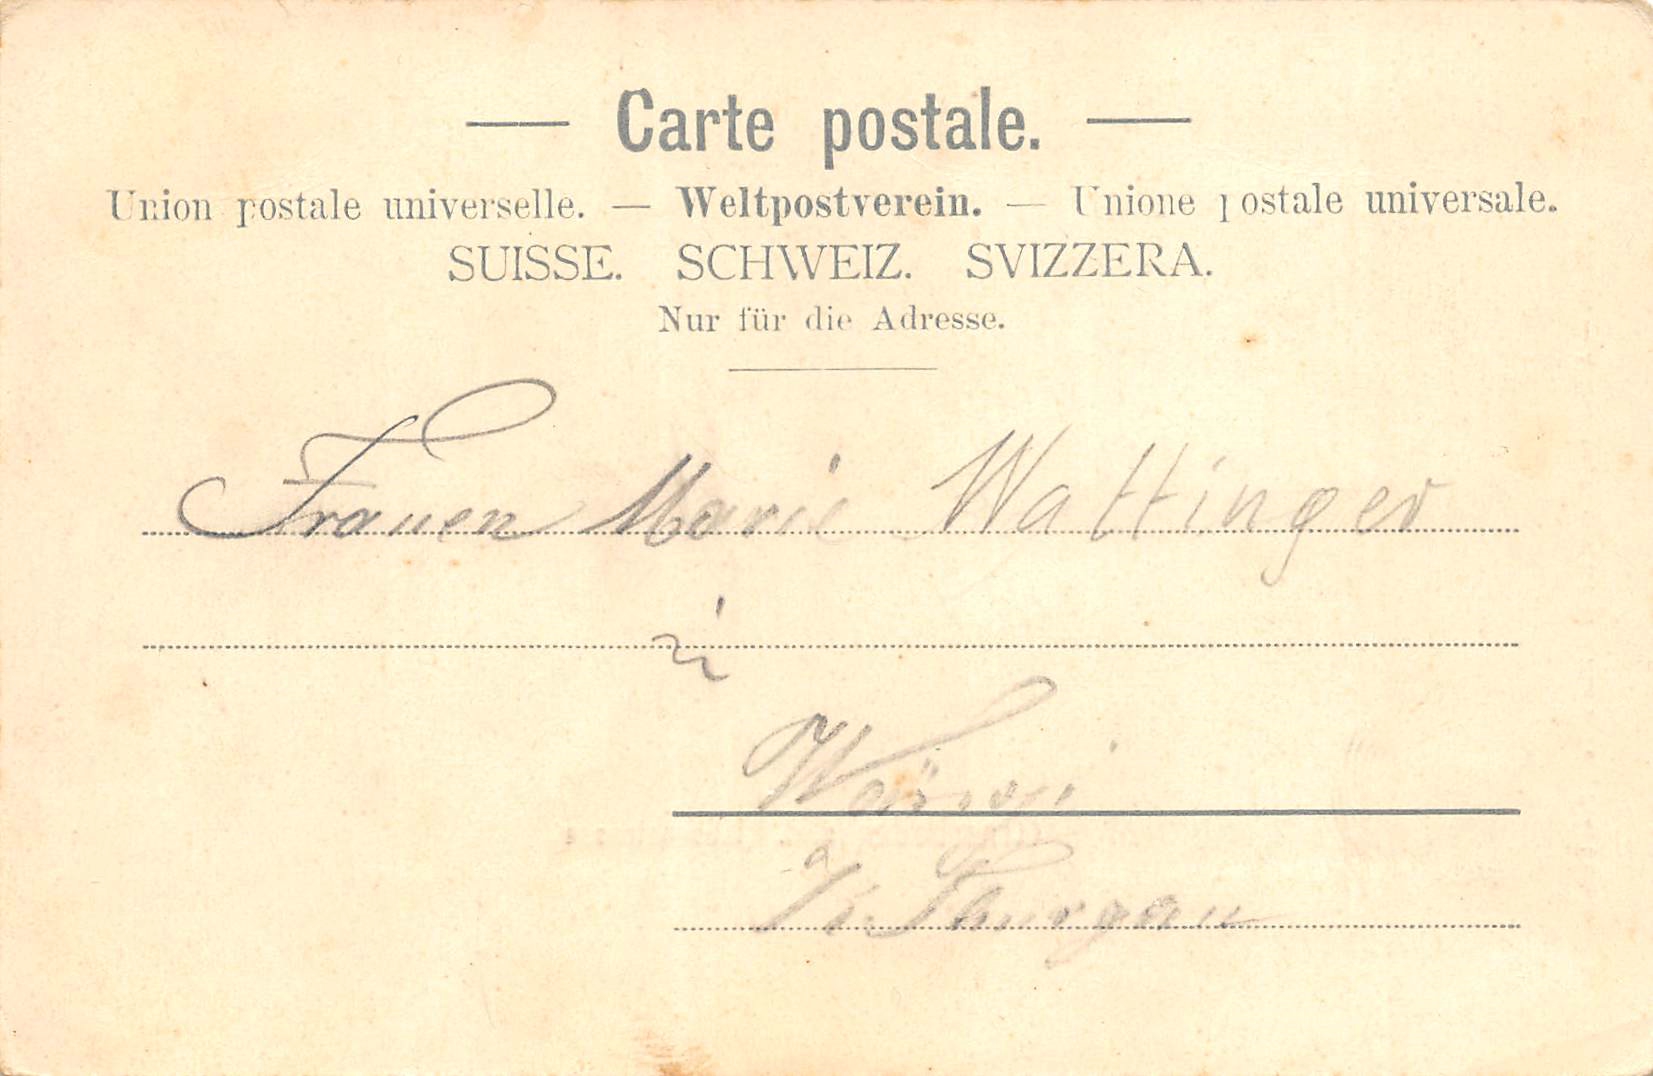 — Carte postale. —
Union postale universelle. — Weltpostverein. — Unione postale universale.
SUISSE. SCHWEIZ. SVIZZERA.
Nur für die Adresse.
Frauen Marie Wattinger
in
Thurgau